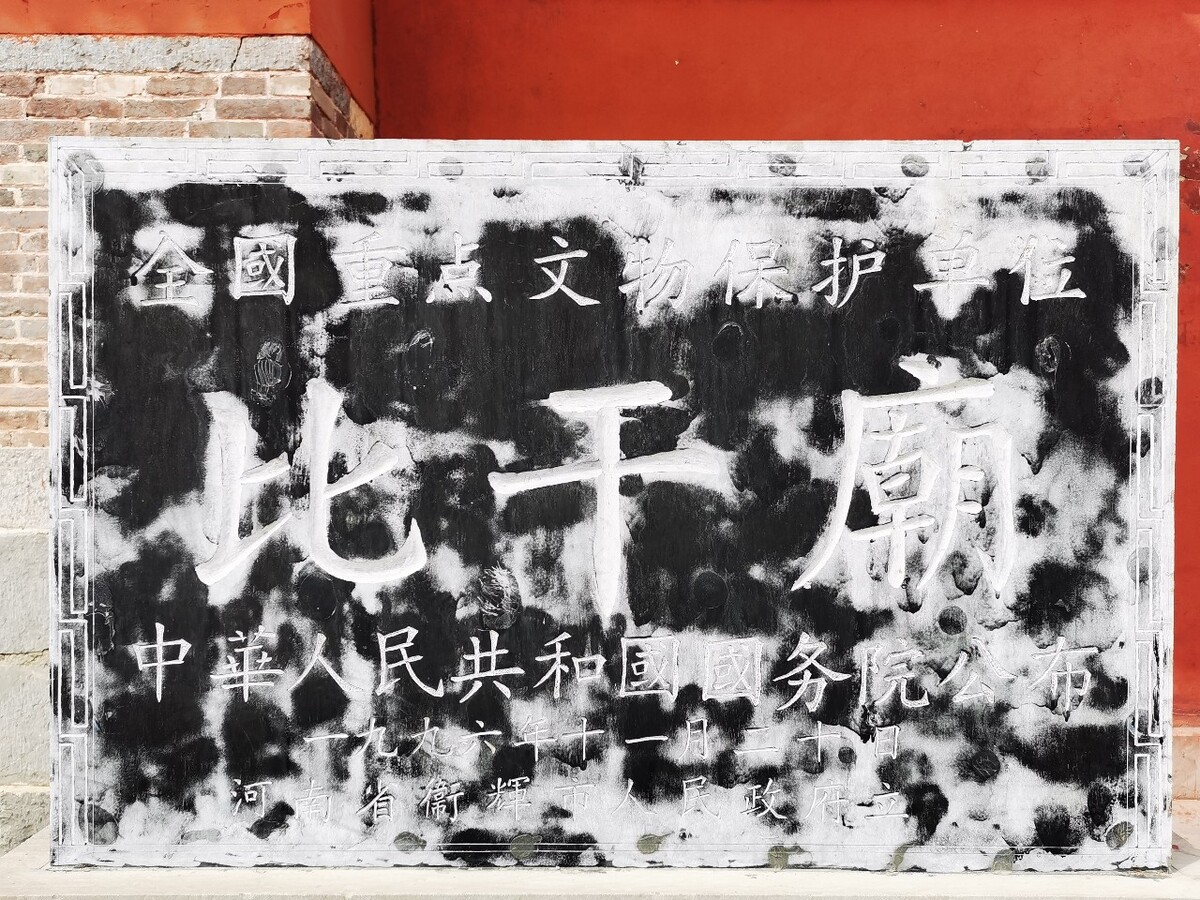 全國重点文物保护单位
比干廟
中華人民共和國國务院公布
一九九六年十一月二十日
河南省衞輝市人民政府立